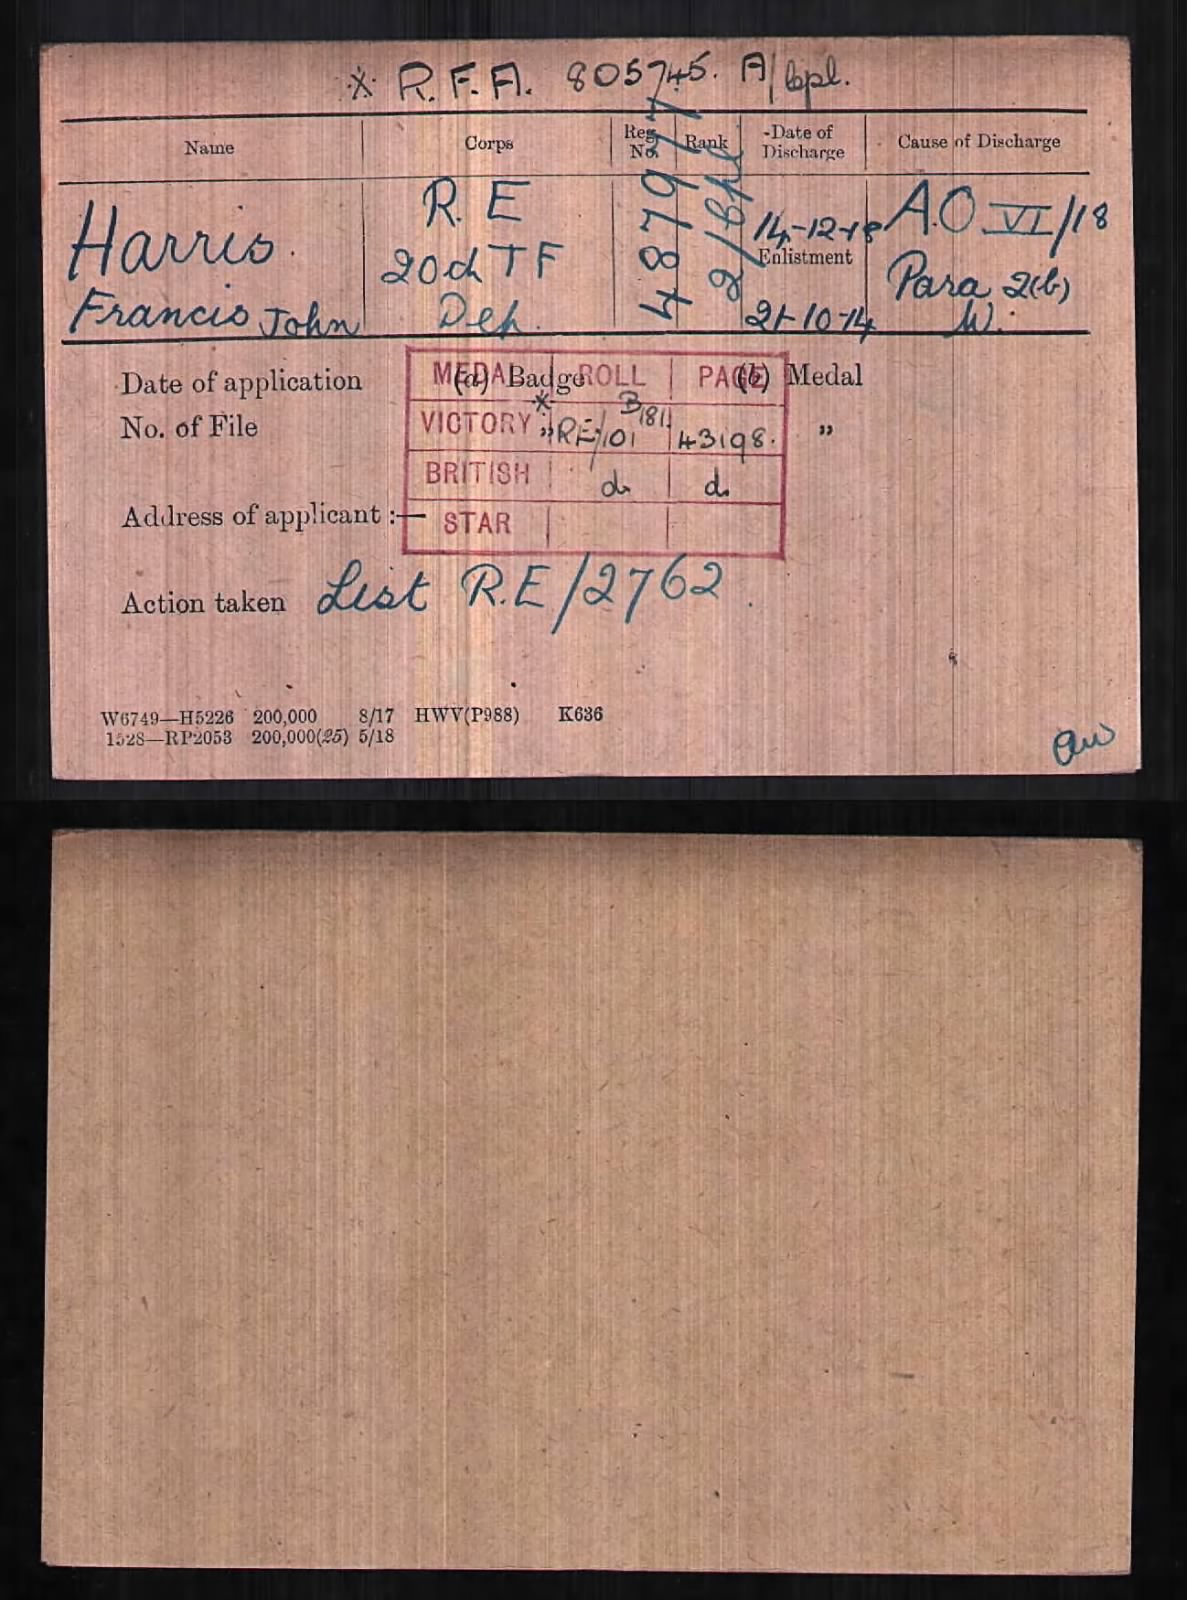 * R.F.A. 805745. A/Cpl.
Name Corps Reg. No. Rank Date of Discharge Cause of Discharge
Harris. R.E 487977 2/Cpl 14-12-18 A.O VI/18
20d TF Enlistment Para 2(b)
Francis John Dep. 21-10-14 W.
Date of application (a) Badge (b) Medal
MEDAL ROLL PAGE
No. of File „ „
VICTORY * RE/101 B181. 43198.
BRITISH do do
Address of applicant :—
STAR
Action taken List R.E/2762.
W6749—H5226 200,000 8/17 HWV(P988) K636
1528—RP2053 200,000(25) 5/18
aw